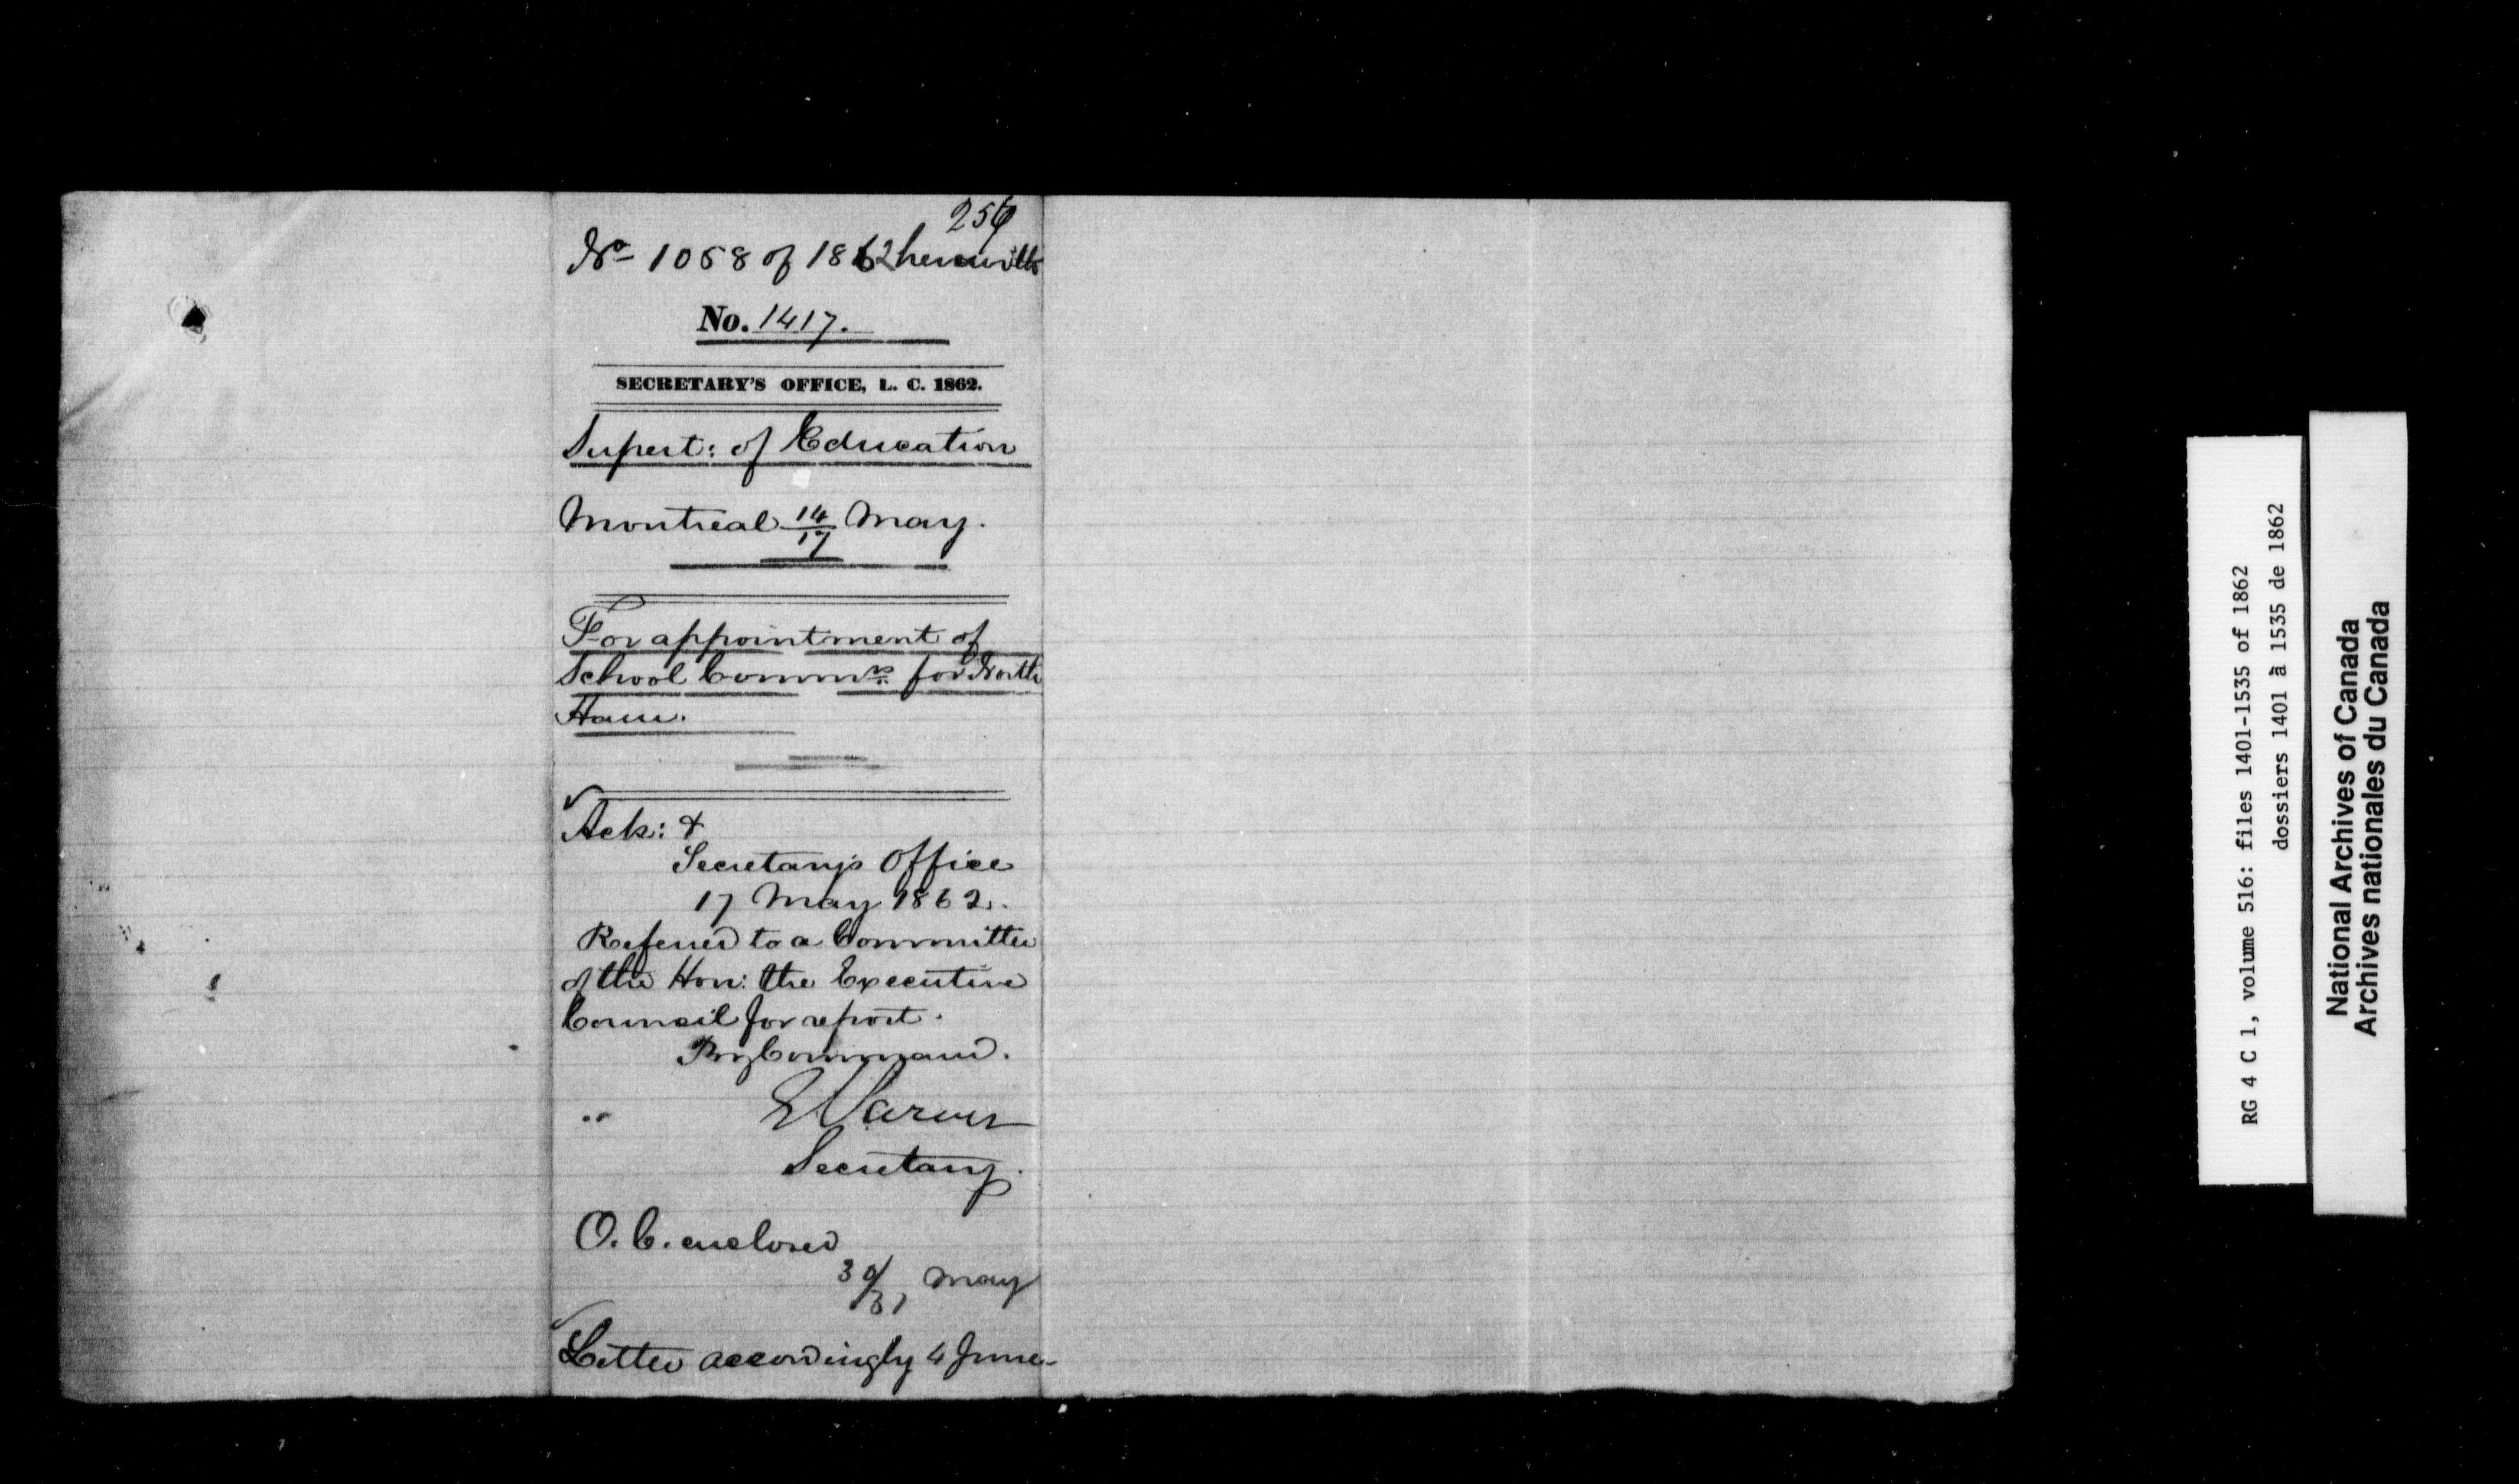 256
No 1058 of 1862 herewith
No. 1417.
SECRETARY'S OFFICE, L. C. 1862.
Supert: of Education
Montreal 14/17 May.
For appointment of
School Commrs for North
Ham.
Ack: &
Secretary's Office
17 May 1862.
Referred to a Committee
of the Hon: the Executive
Council for report.
By Command.
Secretary.
O. C. enclosed
30/31 May
Letter accordingly 4 June
RG 4 C 1, volume 516: files 1401-1535 of 1862
dossiers 1401 à 1535 de 1862
National Archives of Canada
Archives nationales du Canada